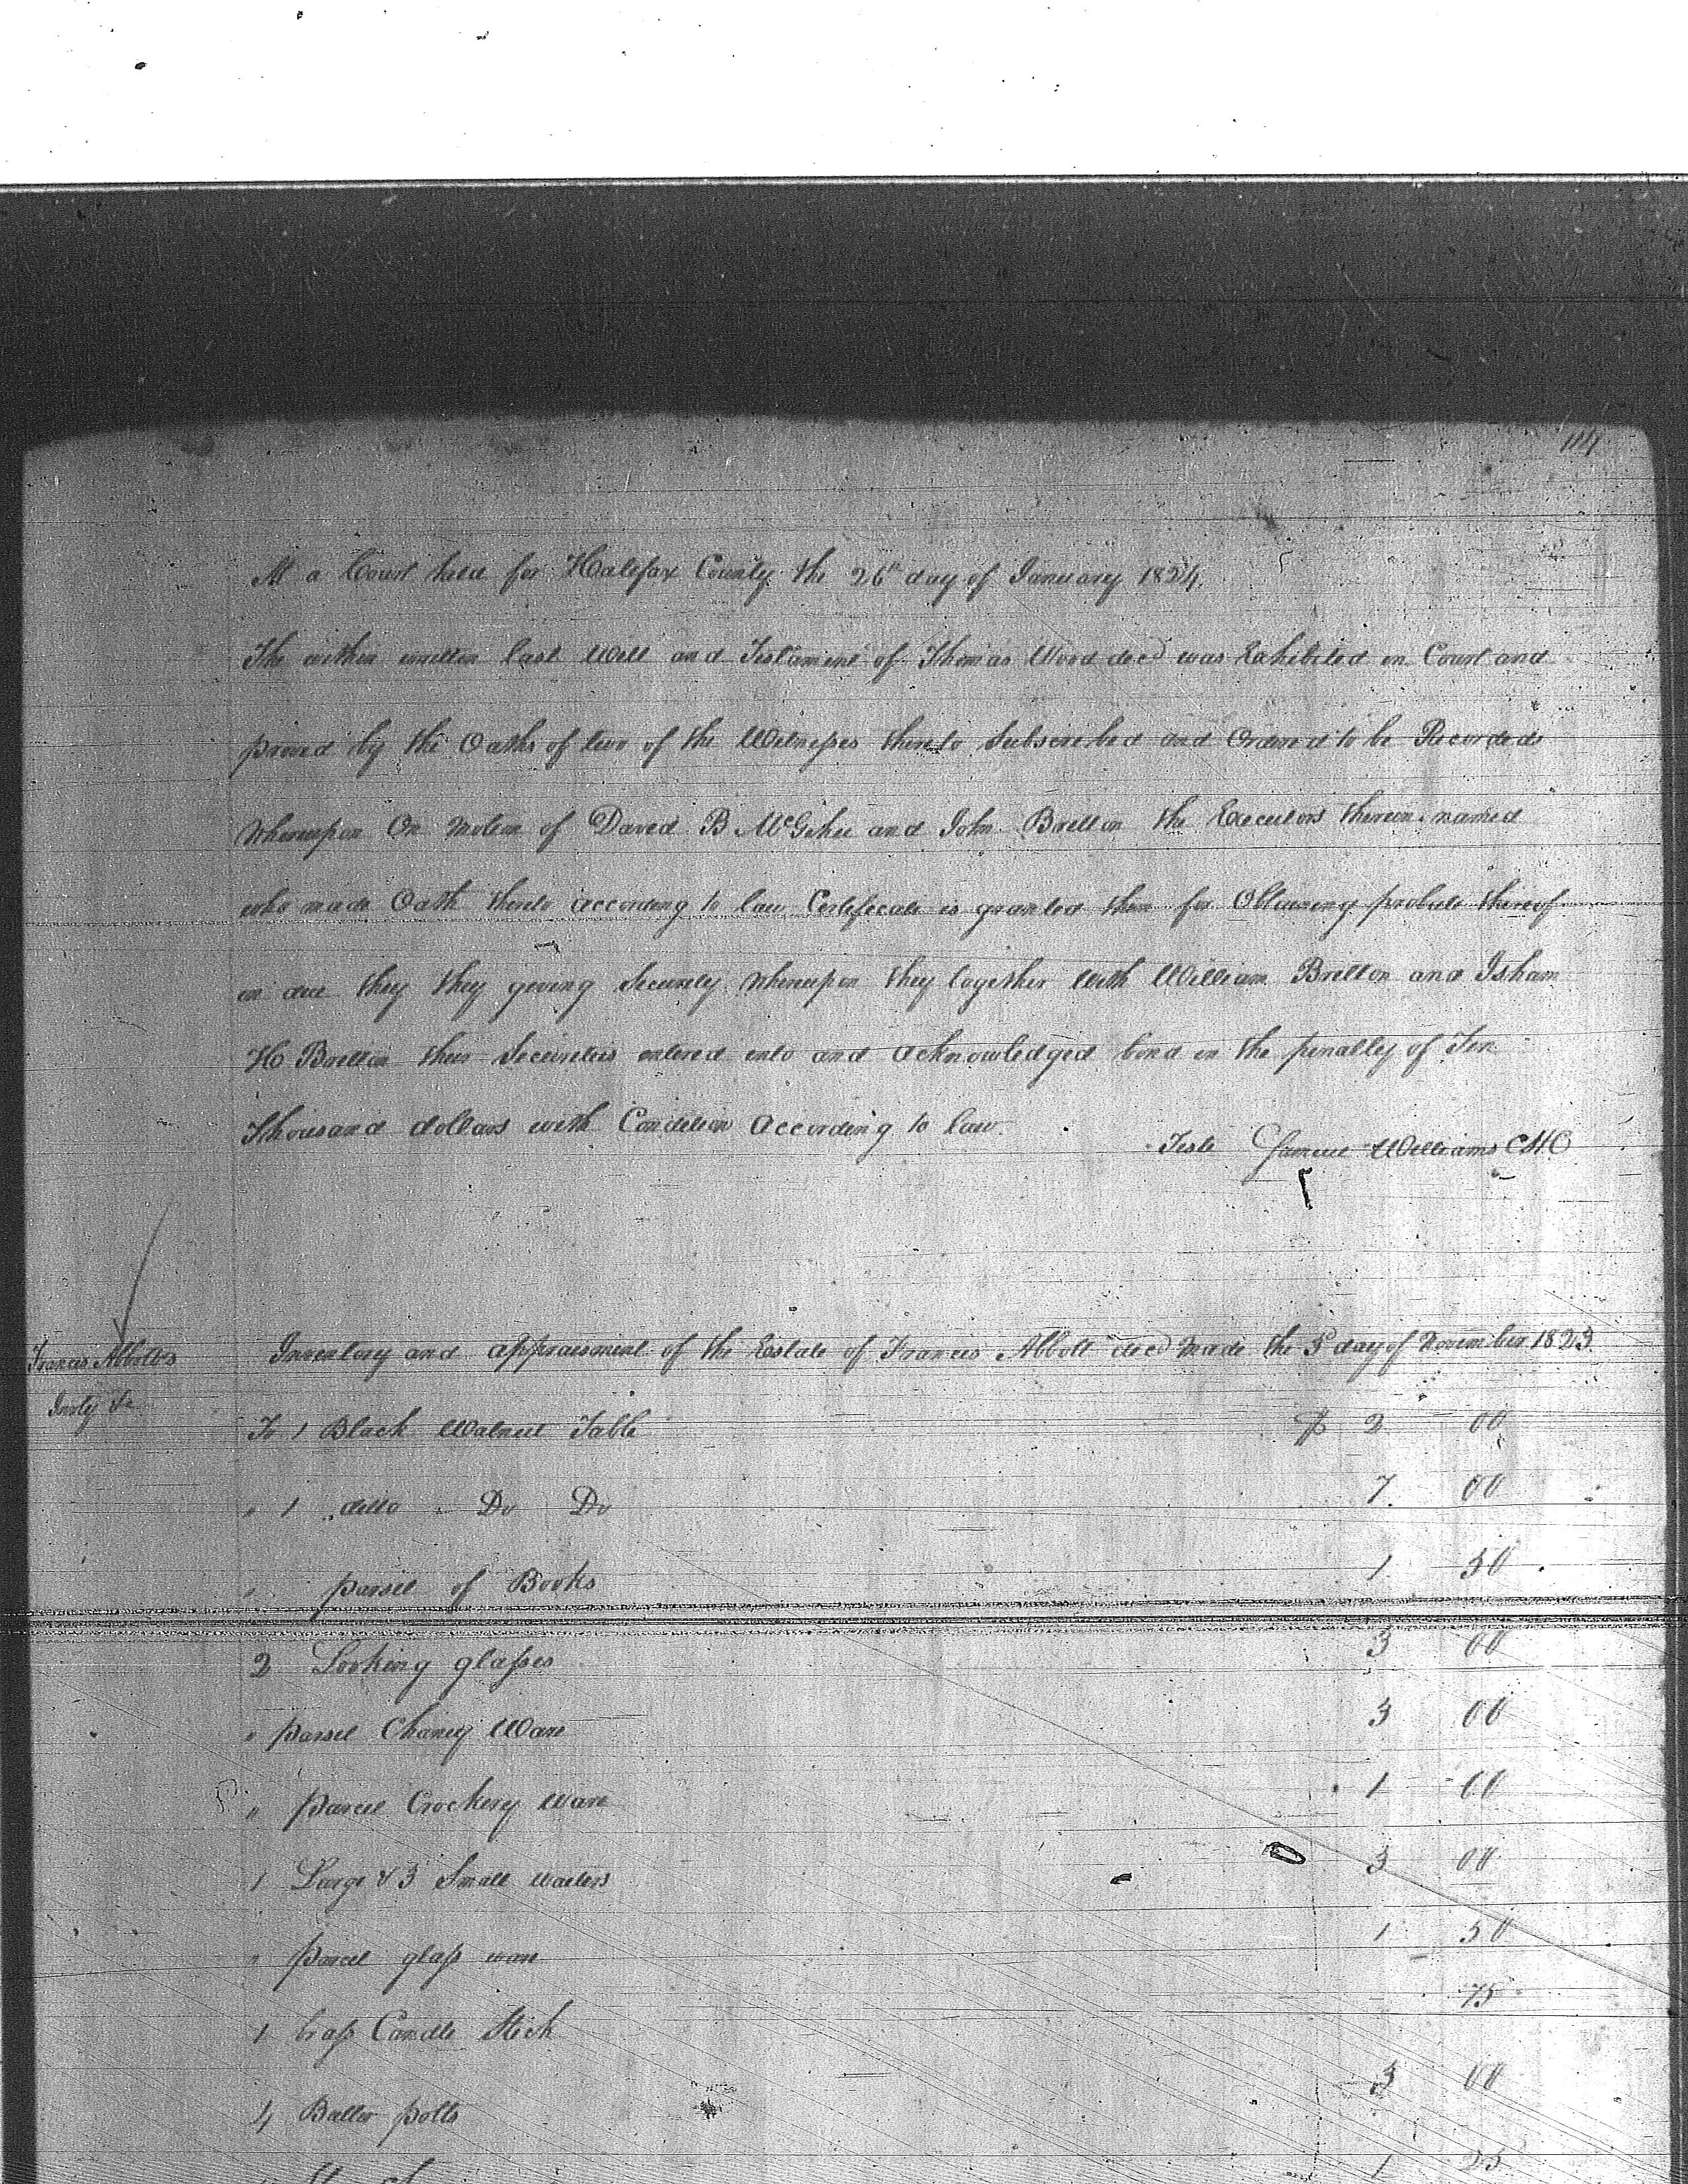 114
At a Court held for Halifax County the 26th day of January 1824.
The within written last Will and Testament of Thomas Wood decd was Exhibited in Court and
proved by the Oaths of two of the Witnesses thereto Subscribed and Ordered to be Recorded
Whereupon On motion of David B McGehee and John Britton the Executors therein named
who made Oath thereto according to law Certificate is granted them for Obtaining probate thereof
in due they they giving Security Whereupon they together with William Britton and Isham
H Britton their Securities entered into and acknowledged bond in the penalty of Ten
Thousand dollars with Condition According to law.
Teste Samuel Williams CHC
Francis Abbott's
Invty &c
Inventory and appraisment of the Estate of Francis Abbott decd made the 3d day of November 1823.
To 1 Black Walnut Table $ 2 00
" 1 ditto Do Do 7 00
" parsel of Books 1 50
2 Looking glasses 3 00
" parsel Chaney Ware 3 00
" parcel Crockery Ware 1 00
1 Large & 3 Small waiters 3 00
" parcel glass ware 1 50
1 brass Candle Stick 75
4 Butter potts 3 00
1 25